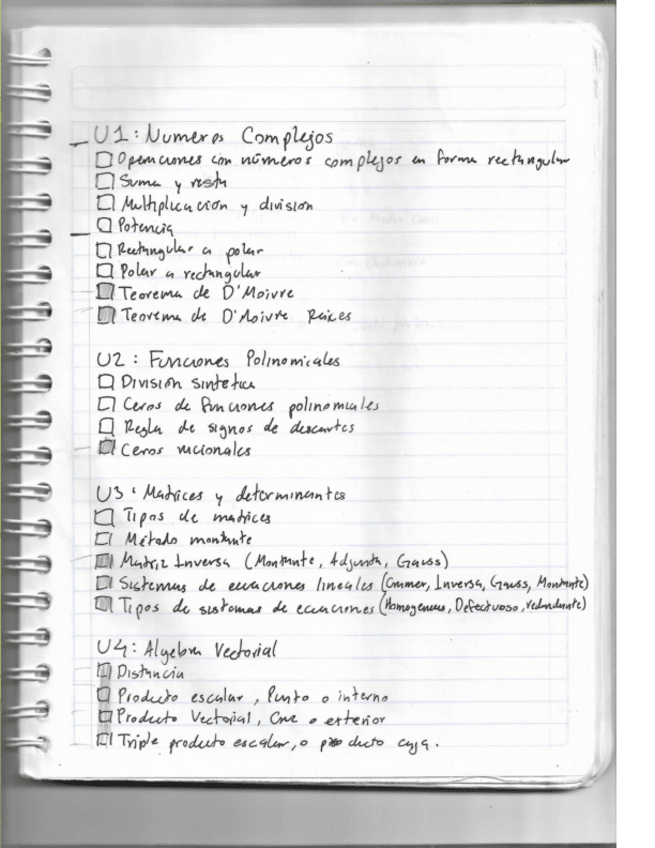 U1: Numeros Complejos
Operaciones con números complejos en forma rectangular
Suma y resta
Multiplicación y división
Potencia
Rectangular a polar
Polar a rectangular
Teorema de D'Moivre
Teorema de D'Moivre Raices
U2: Funciones Polinomicales
División sintetica
Ceros de funciones polinomiales
Regla de signos de descartes
Ceros racionales
U3: Matrices y determinantes
Tipos de matrices
Método montante
Matriz Inversa (Montante, Adjunta, Gauss)
Sistemas de ecuaciones lineales (Crammer, Inversa, Gauss, Montante)
Tipos de sistemas de ecuaciones (Homogeneas, Defectuoso, redundante)
U4: Algebra Vectorial
Distancia
Producto escalar, Punto o interno
Producto Vectorial, Cruz o exterior
Triple producto escalar, o producto caja.